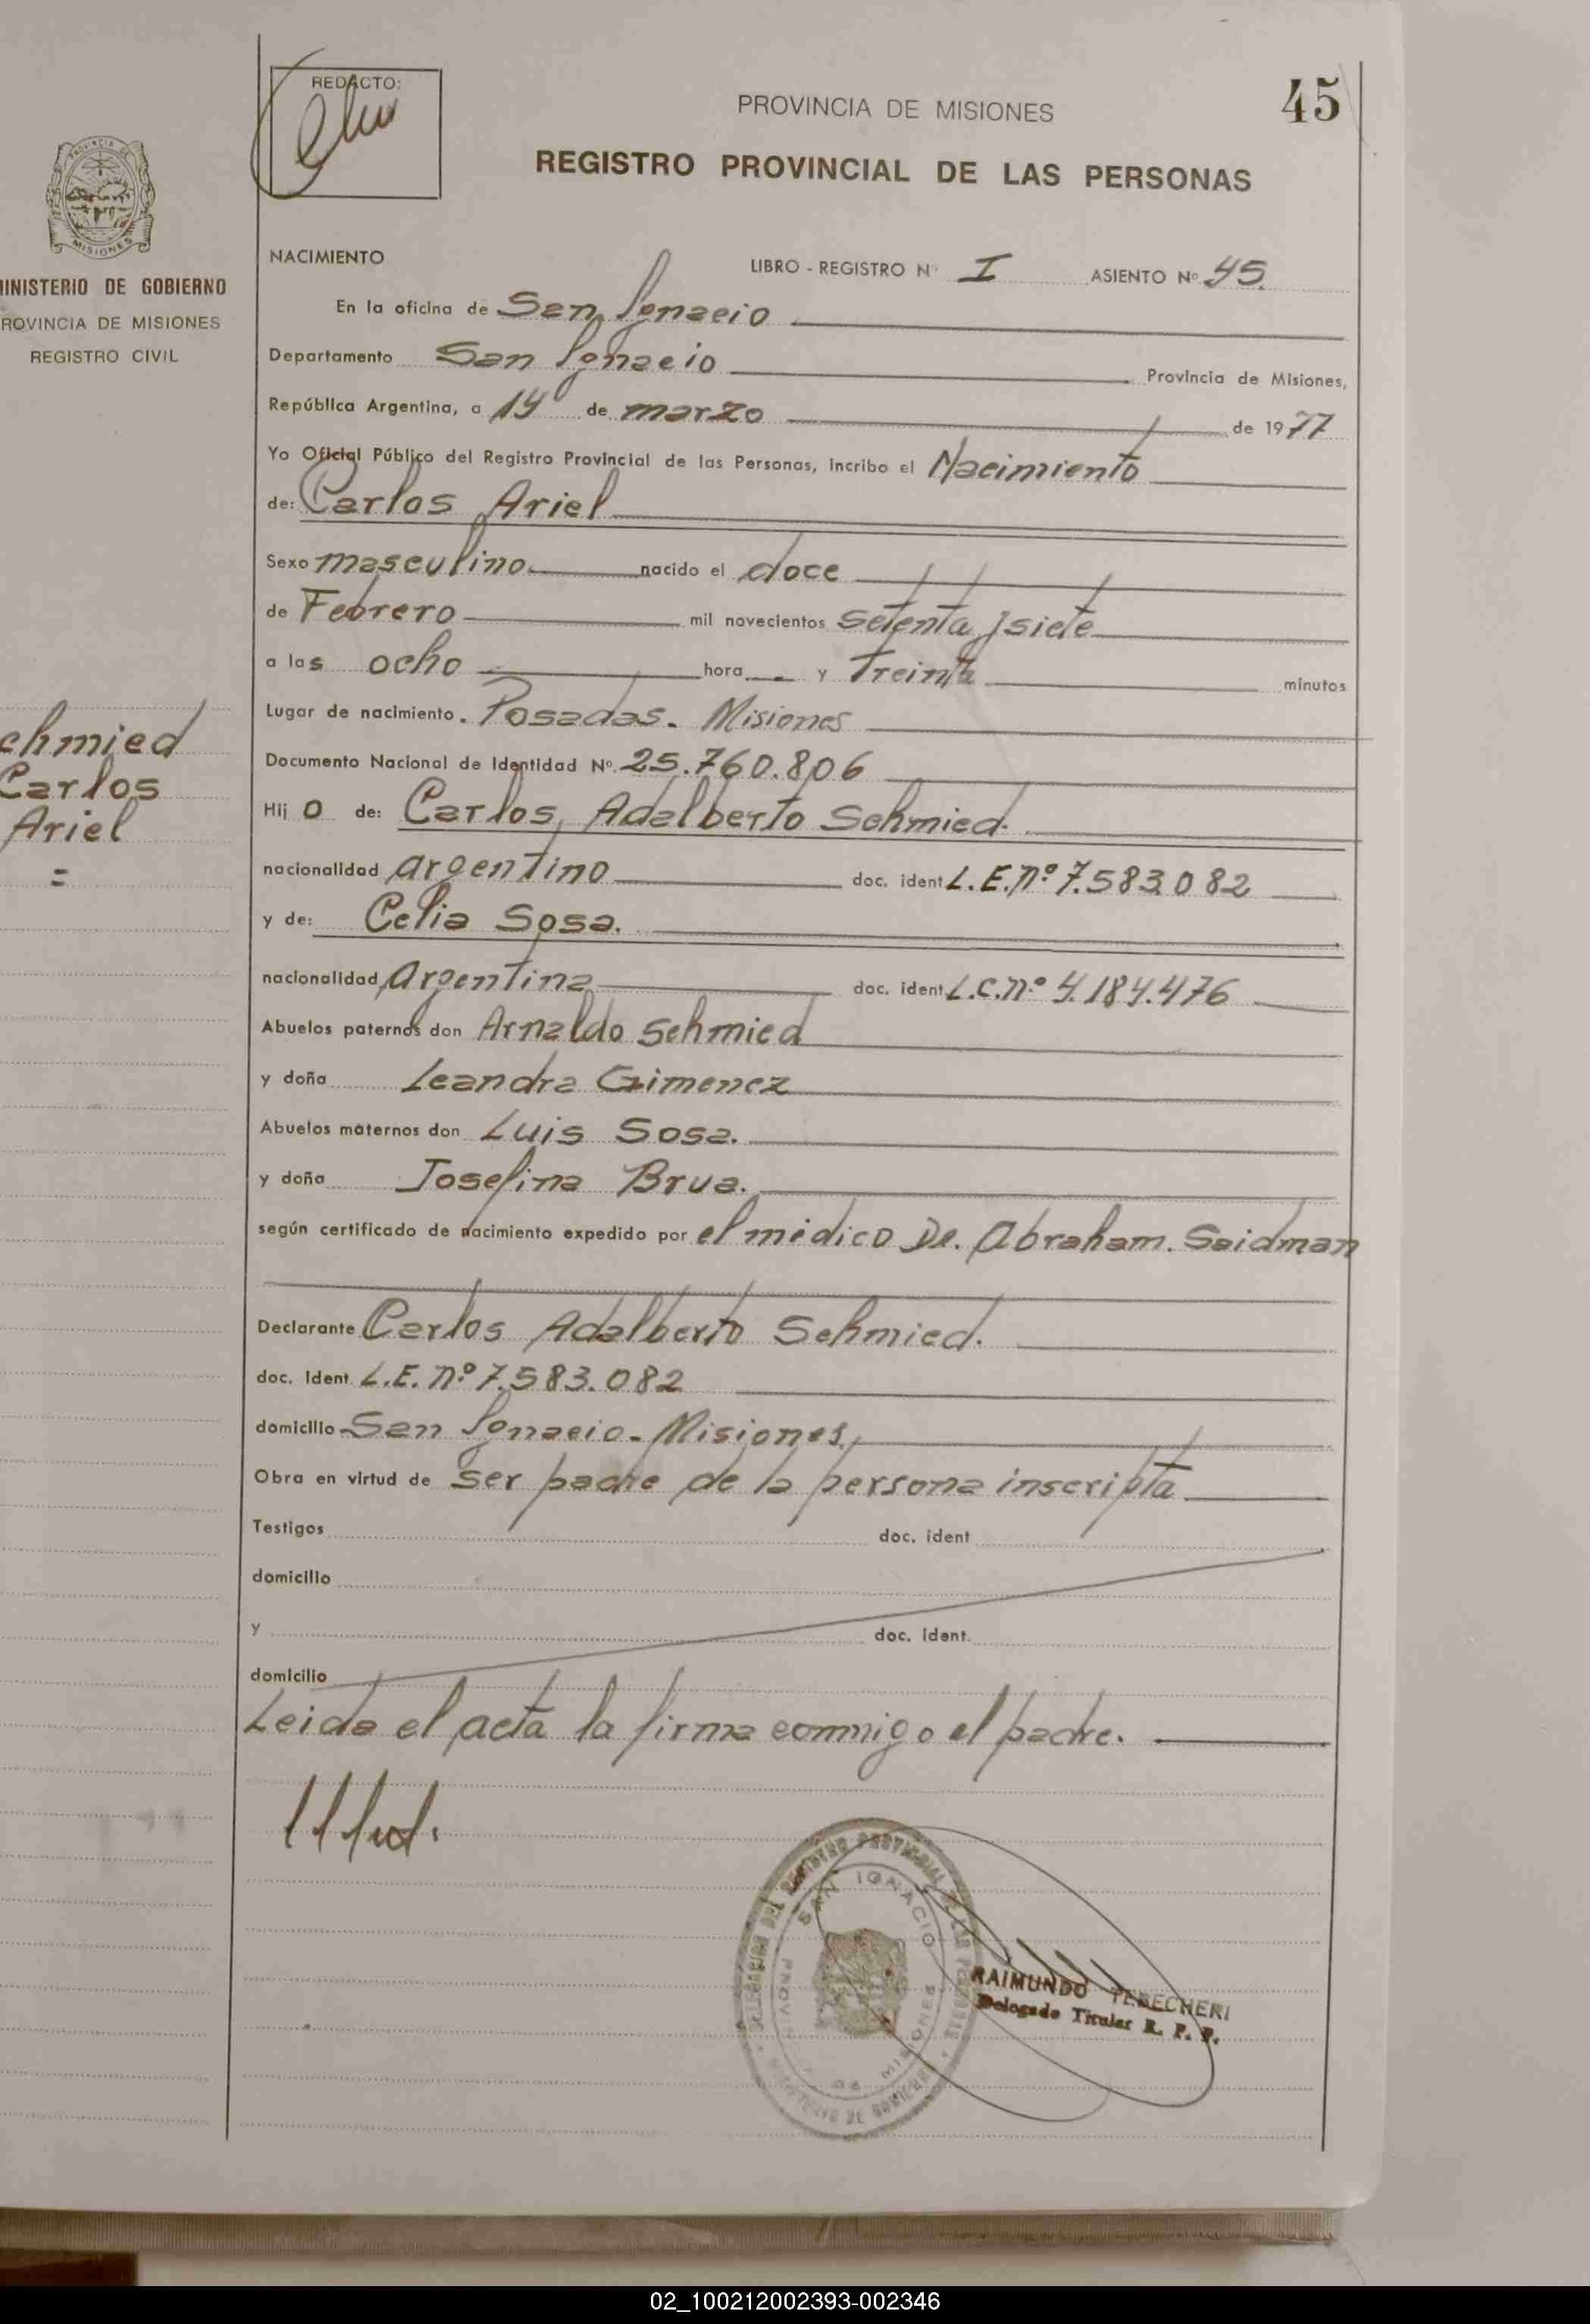 REDACTO:
PROVINCIA DE MISIONES
45
REGISTRO PROVINCIAL DE LAS PERSONAS
PROVINCIA DE
MISIONES
MINISTERIO DE GOBIERNO
PROVINCIA DE MISIONES
REGISTRO CIVIL
chmied
Carlos
Ariel
=
NACIMIENTO LIBRO - REGISTRO Nº I ASIENTO Nº 45.
En la oficina de San Ignacio
Departamento San Ignacio Provincia de Misiones,
República Argentina, a 14 de marzo de 1977
Yo Oficial Público del Registro Provincial de las Personas, incribo el Nacimiento
de: Carlos Ariel
Sexo masculino nacido el doce
de Febrero mil novecientos setenta y siete
a las ocho hora y Treinta minutos
Lugar de nacimiento. Posadas. Misiones
Documento Nacional de Identidad Nº 25.760.806
Hij o de: Carlos Adalberto Schmied.
nacionalidad argentino doc. ident L.E.nº 7.583.082
y de: Celia Sosa.
nacionalidad Argentina doc. ident L.C.nº 4.184.476
Abuelos paternos don Arnaldo Schmied
y doña Leandra Gimenez
Abuelos maternos don Luis Sosa.
y doña Josefina Brua.
según certificado de nacimiento expedido por el médico Dr. Abraham. Saidman
Declarante Carlos Adalberto Schmied.
doc. Ident. L.E. nº 7.583.082
domicilio San Ignacio - Misiones.
Obra en virtud de ser padre de la persona inscripta
Testigos doc. ident
domicilio
y doc. ident.
domicilio
Leida el acta la firma conmigo el padre.
DELEGACION DEL REGISTRO PROVINCIAL DE LAS PERSONAS
SAN IGNACIO
DE MISIONES
MINISTERIO DE GOBIERNO
RAIMUNDO TEBECHERI
Delegado Titular R. P. P.
02_100212002393-002346